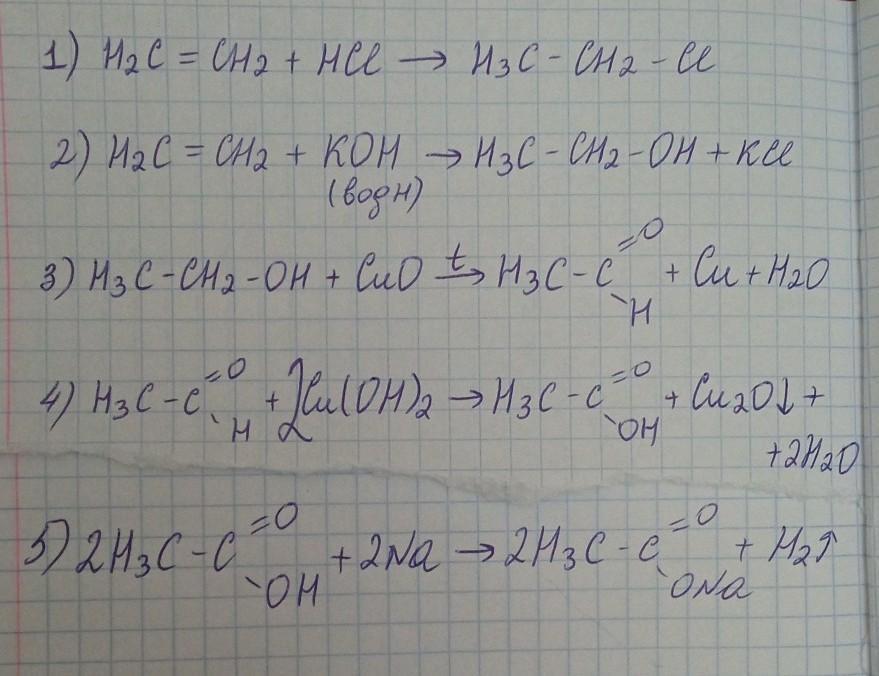 1) H2C = CH2 + HCl → H3C - CH2 - Cl
2) H2C = CH2 + KOH → H3C - CH2 - OH + KCl
(водн)
3) H3C - CH2 - OH + CuO t→ H3C - C =O -H + Cu + H2O
4) H3C - C =O -H + 2Cu(OH)2 → H3C - C =O -OH + Cu2O↓ +
+ 2H2O
5) 2H3C - C =O -OH + 2Na → 2H3C - C =O -ONa + H2↑